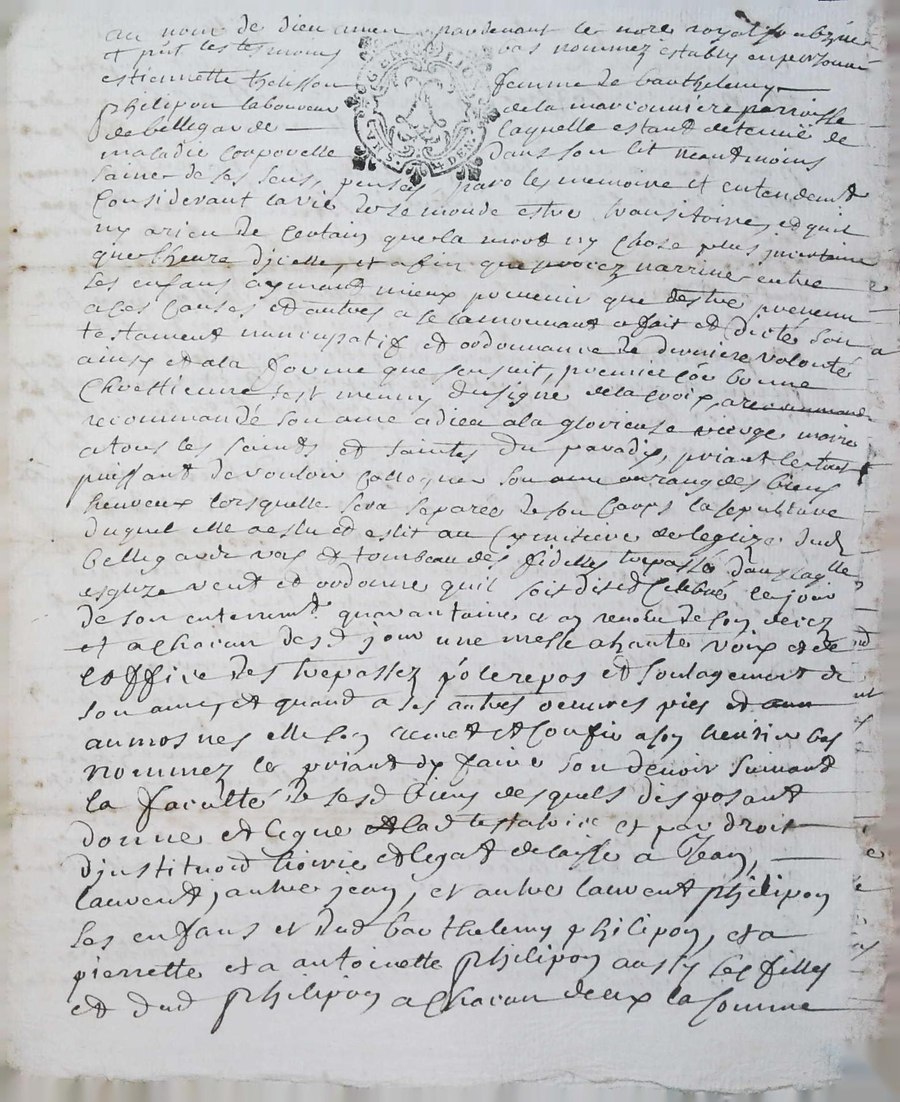 au nom de dieu amen pardevant le nore royal soubzine
et p̄nt les tesmoins bas nommez establÿ en personne
estiennette thelisson femme de barthelemy
philipon laboureur de la marconniere parroisse
de bellegarde laquelle estant detenue de
maladie corporelle dans son lit neantmoins
saine de ses sens, pensee parolle memoire et entendemt
Considerant la vie de ce monde estre transitoire, et quil
ny a rien de certain que la mort ny chose plus incertaine
que lheure dicelle, et afin que procez narrive entre
ses enfans aymant mieux prevenir que destre prevenu
a ces causes et autres a ce la mouvant a fait et dicté son
testament nuncupatif et ordonnance de derniere volonté
ainsy et a la forme que sensuit, premier com̄e bonne
Chrettienne sest munny du signe de la croix, a recommand
recommandé son ame a dieu a la glorieuse vierge marie
a tous les saincts et saintes du paradix, priant le tout
puissant de vouloir colloquer son ame au rang des biens
heureux lorsquelle sera separee de son corps la sepulture
duquel elle a eslu et eslit au cymitiere de leglize dud
bellegarde vas et tombeau des fidelles trepassés dans laqlle
esglize veut et ordonne quil soit dit et celebrés le jour
de son enterremt quarantaine et an revolu de son decez
et a chacun desd jour une messe a haute voix et de
loffice des trepassez p̄r le repos et soulagement de
son ame, et quand a ses autres oeuvres pies et aum
aumosnes elle sen remet et confie a son heritier bas
nommez le priant dy faire son devoir suivant
la faculté de sesd biens desquels disposant
donne et legue lad testatrice et par droit
djnstitu͠on hoirie et legat delaisse a Jean,
laurent, autre jean, et autre laurent philipon
ses enfans et dud barthelemy philipon, et a
pierrette et a antoinette philipon aussy ses filles
et dud philipon a chacun deux la somme